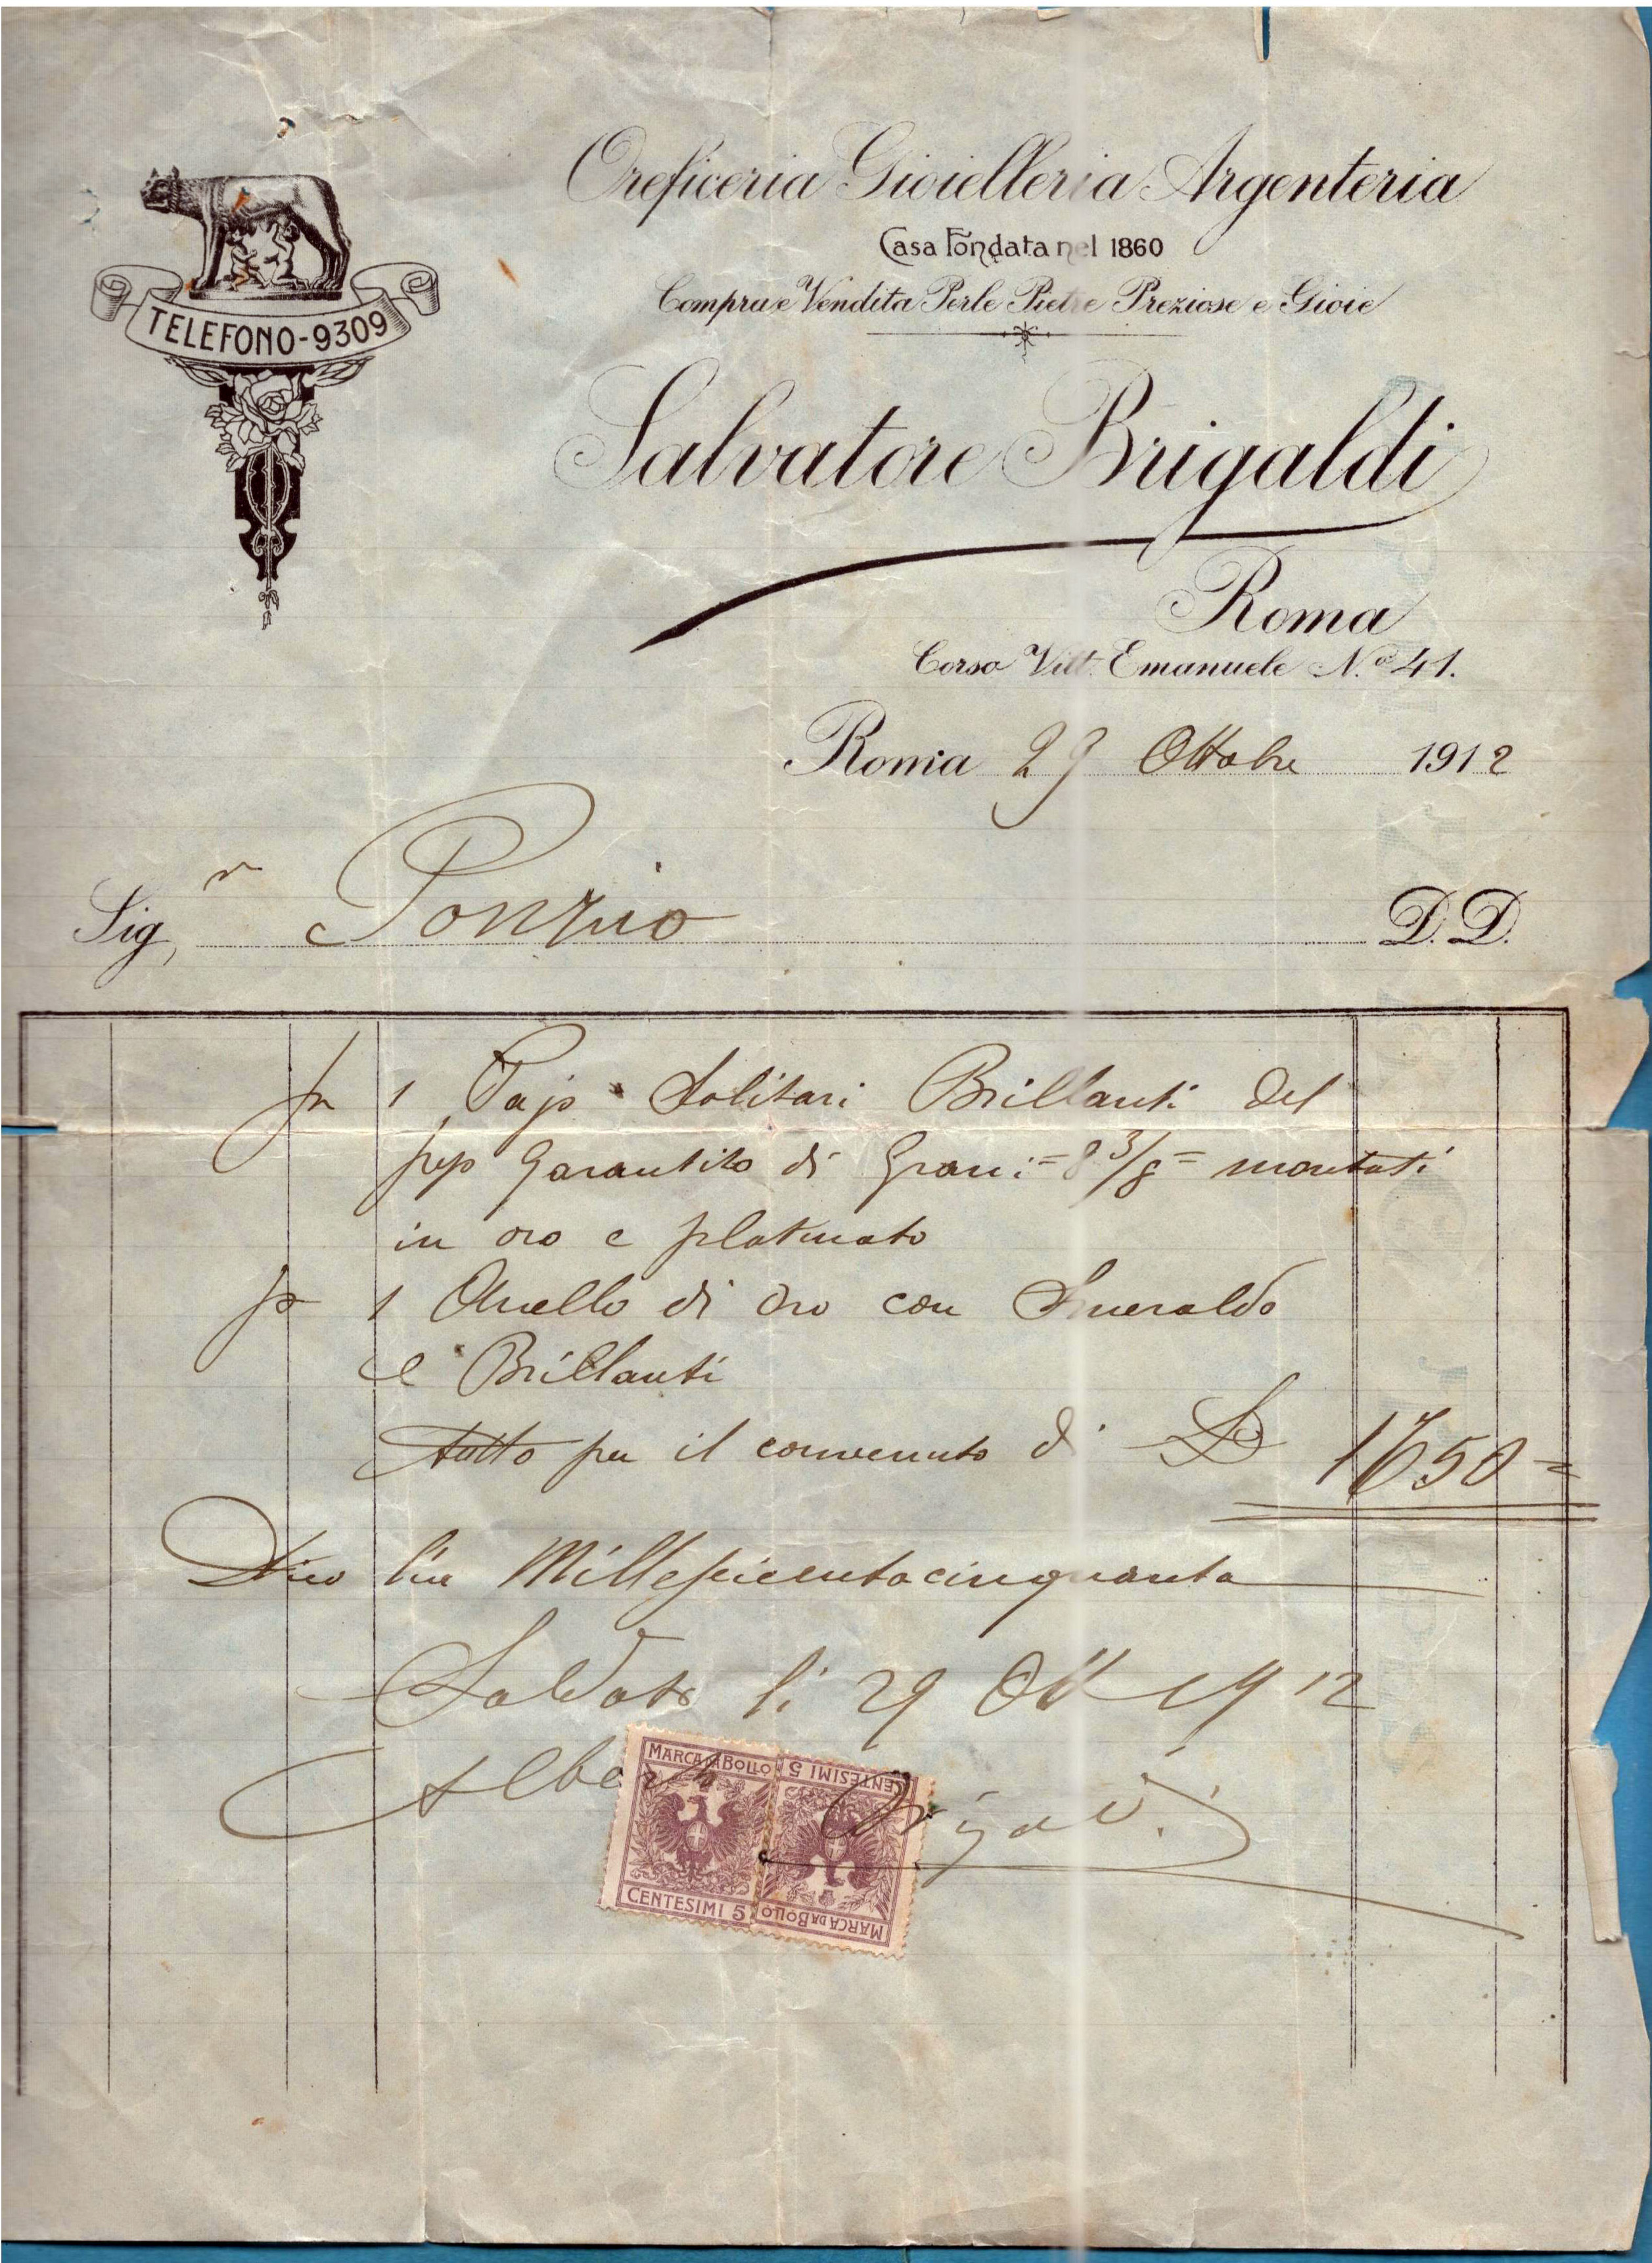 Oreficeria Gioielleria Argenteria
Casa Fondata nel 1860
Compra e Vendita Perle Pietre Preziose e Gioie
TELEFONO-9309
Salvatore Brigaldi
Roma
Corso Vitt. Emanuele N.o 41.
Roma 29 Ottobre 1912
Sig,r Ponzio D.D.
1 Pajo Solitari Brillanti del
peso garantito di Grani = 8 3/8 = montati
in oro e platinato
1 Anello di oro con Smeraldo
e Brillanti
tutto per il convenuto di L 1650=
Dico lire Milleseicentocinquanta
Saldato li 29 Ott 1912
Alberto Brigaldi
MARCA DA BOLLO CENTESIMI 5
CENTESIMI 5 MARCA DA BOLLO